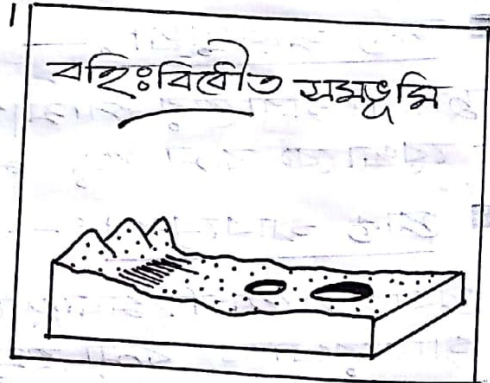 বহিঃবিধৌত সমভূমি